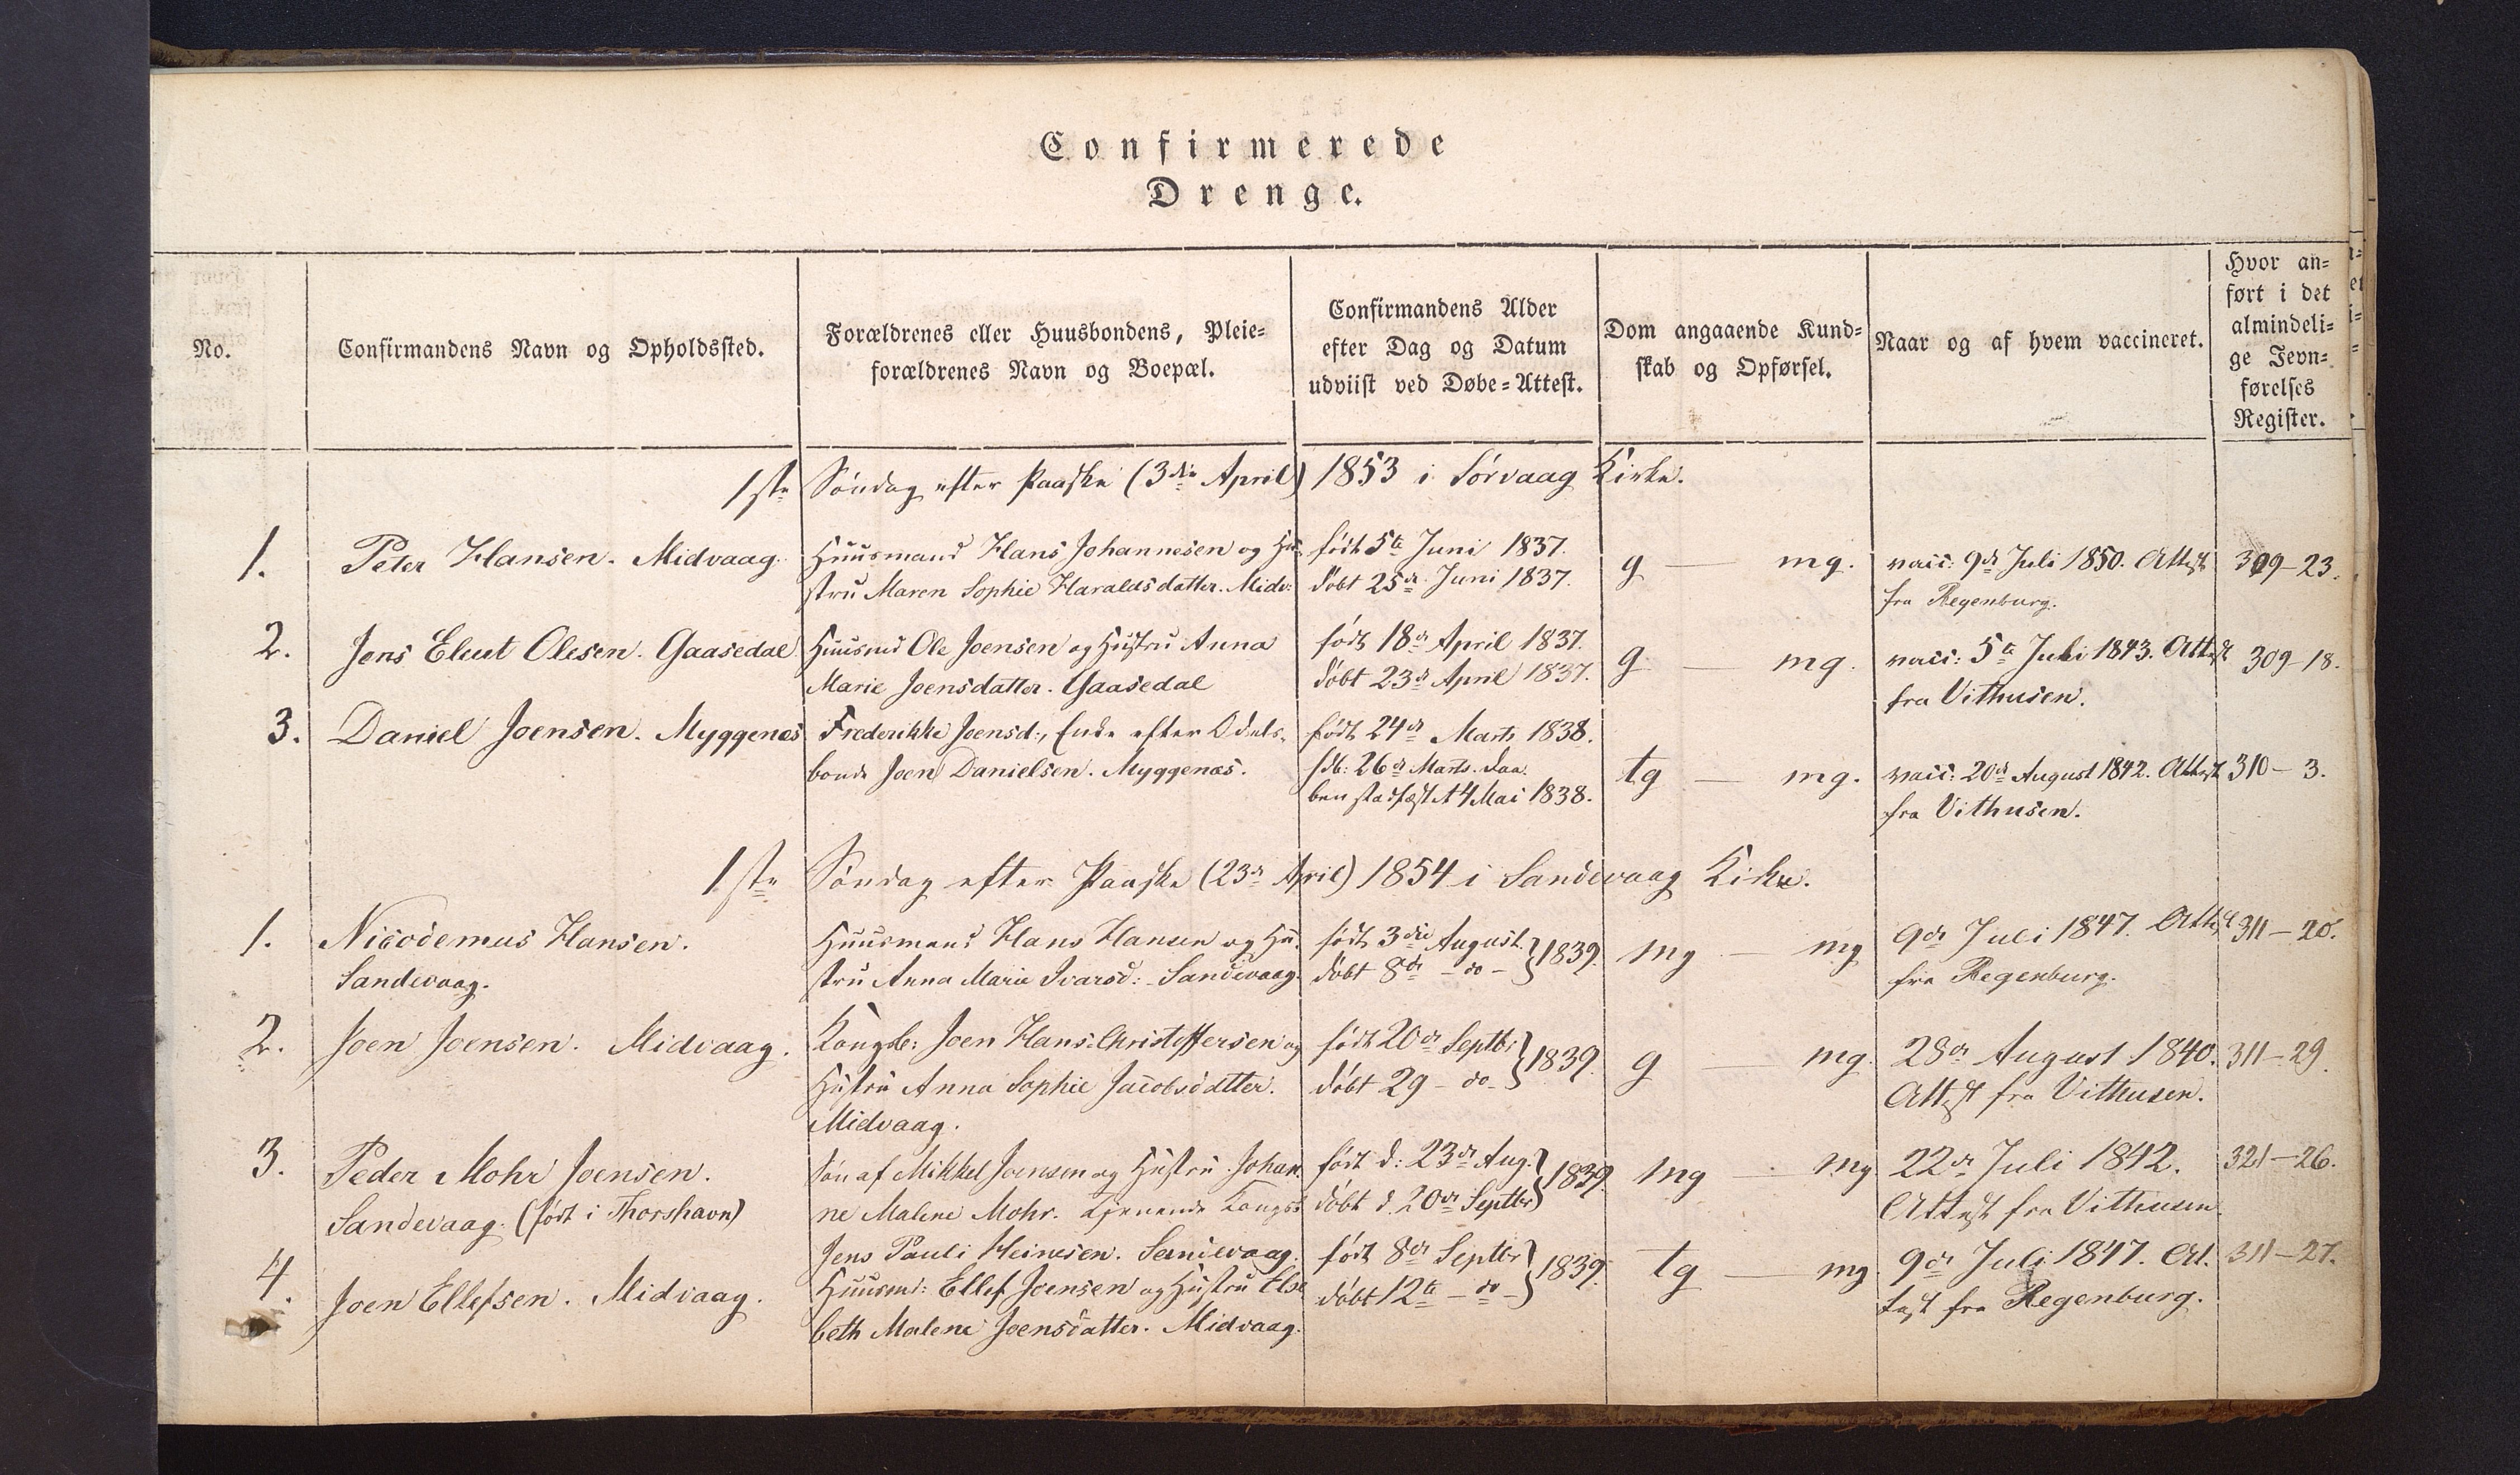 Confirmerede
Drenge.
No.
Confirmandens Navn og Opholdssted.
Forældrenes eller Huusbondens, Pleie-
forældrenes Navn og Boepæl.
Confirmandens Alder
efter Dag og Datum
udviist ved Døbe-Attest.
Dom angaaende Kund-
skab og Opførsel.
Naar og af hvem vaccineret.
Hvor an-
ført i det
almindeli-
ge Jevn-
førelses
Register.
1ste Søndag efter Paaske (3die April) 1853 i Sørvaag Kirke.
1.
Peter Hansen. Midvaag.
Huusmand Hans Johannesen og Hu-
stru Maren Sophie Haraldsdatter. Midv:
født 5te Juni 1837.
døbt 25de Juni 1837.
g — mg.
vacc: 9de Juli 1850. Attest
fra Regenburg.
309-23.
2.
Jens Elut Olesen. Gaasedal
Huusmd Ole Joensen og Hustru Anna
Marie Joensdatter. Gaasedal
født 18de April 1837.
døbt 23de April 1837.
g — mg.
vacc: 5te Juli 1843. Attest
fra Vithusen.
309-18.
3.
Daniel Joensen. Myggenæs
Frederikke Joensd:, Enke efter Odels-
bonde Joen Danielsen. Myggenæs.
født 24de Marts 1838.
hdb: 26de Marts. Daa-
ben stadfæst. 4 Mai 1838.
tg — mg.
vacc: 20de August 1842. Attest
fra Vithusen.
310-3.
1ste Søndag efter Paaske (23de April) 1854 i Sandevaag Kirke.
1.
Nicodemus Hansen.
Sandevaag.
Huusmand Hans Hansen og Hu-
stru Anna Marie Ivarsd: Sandevaag.
født 3die August.
døbt 8de - do - } 1839.
mg — mg
9de Juli 1847. Attest
fra Regenburg.
311-20.
2.
Joen Joensen. Midvaag.
Kongsb: Joen Hans Christoffersen og
Hustru Anna Sophie Jacobsdatter.
Midvaag.
født 20de Septbr
døbt 29 - do - } 1839.
g — mg.
28de August 1840.
Attest fra Vithusen.
311-29.
3.
Peder Mohr Joensen.
Sandevaag. (født i Thorshavn)
Søn af Mikkel Joensen og Hustru Johan-
ne Malene Mohr. tjenende Kongsb
Jens Pauli Heinesen. Sandevaag.
født d: 23de Aug.
døbt d. 20de Septbr } 1839.
mg — mg
22de Juli 1842.
Attest fra Vithusen.
321-26.
4.
Joen Ellefsen. Midvaag.
Huusmd: Ellef Joensen og Hustru Else-
beth Malene Joensdatter. Midvaag.
født 8de Septbr
døbt 12te - do - } 1839.
tg — mg.
9de Juli 1847. At-
test fra Regenburg.
311-27.